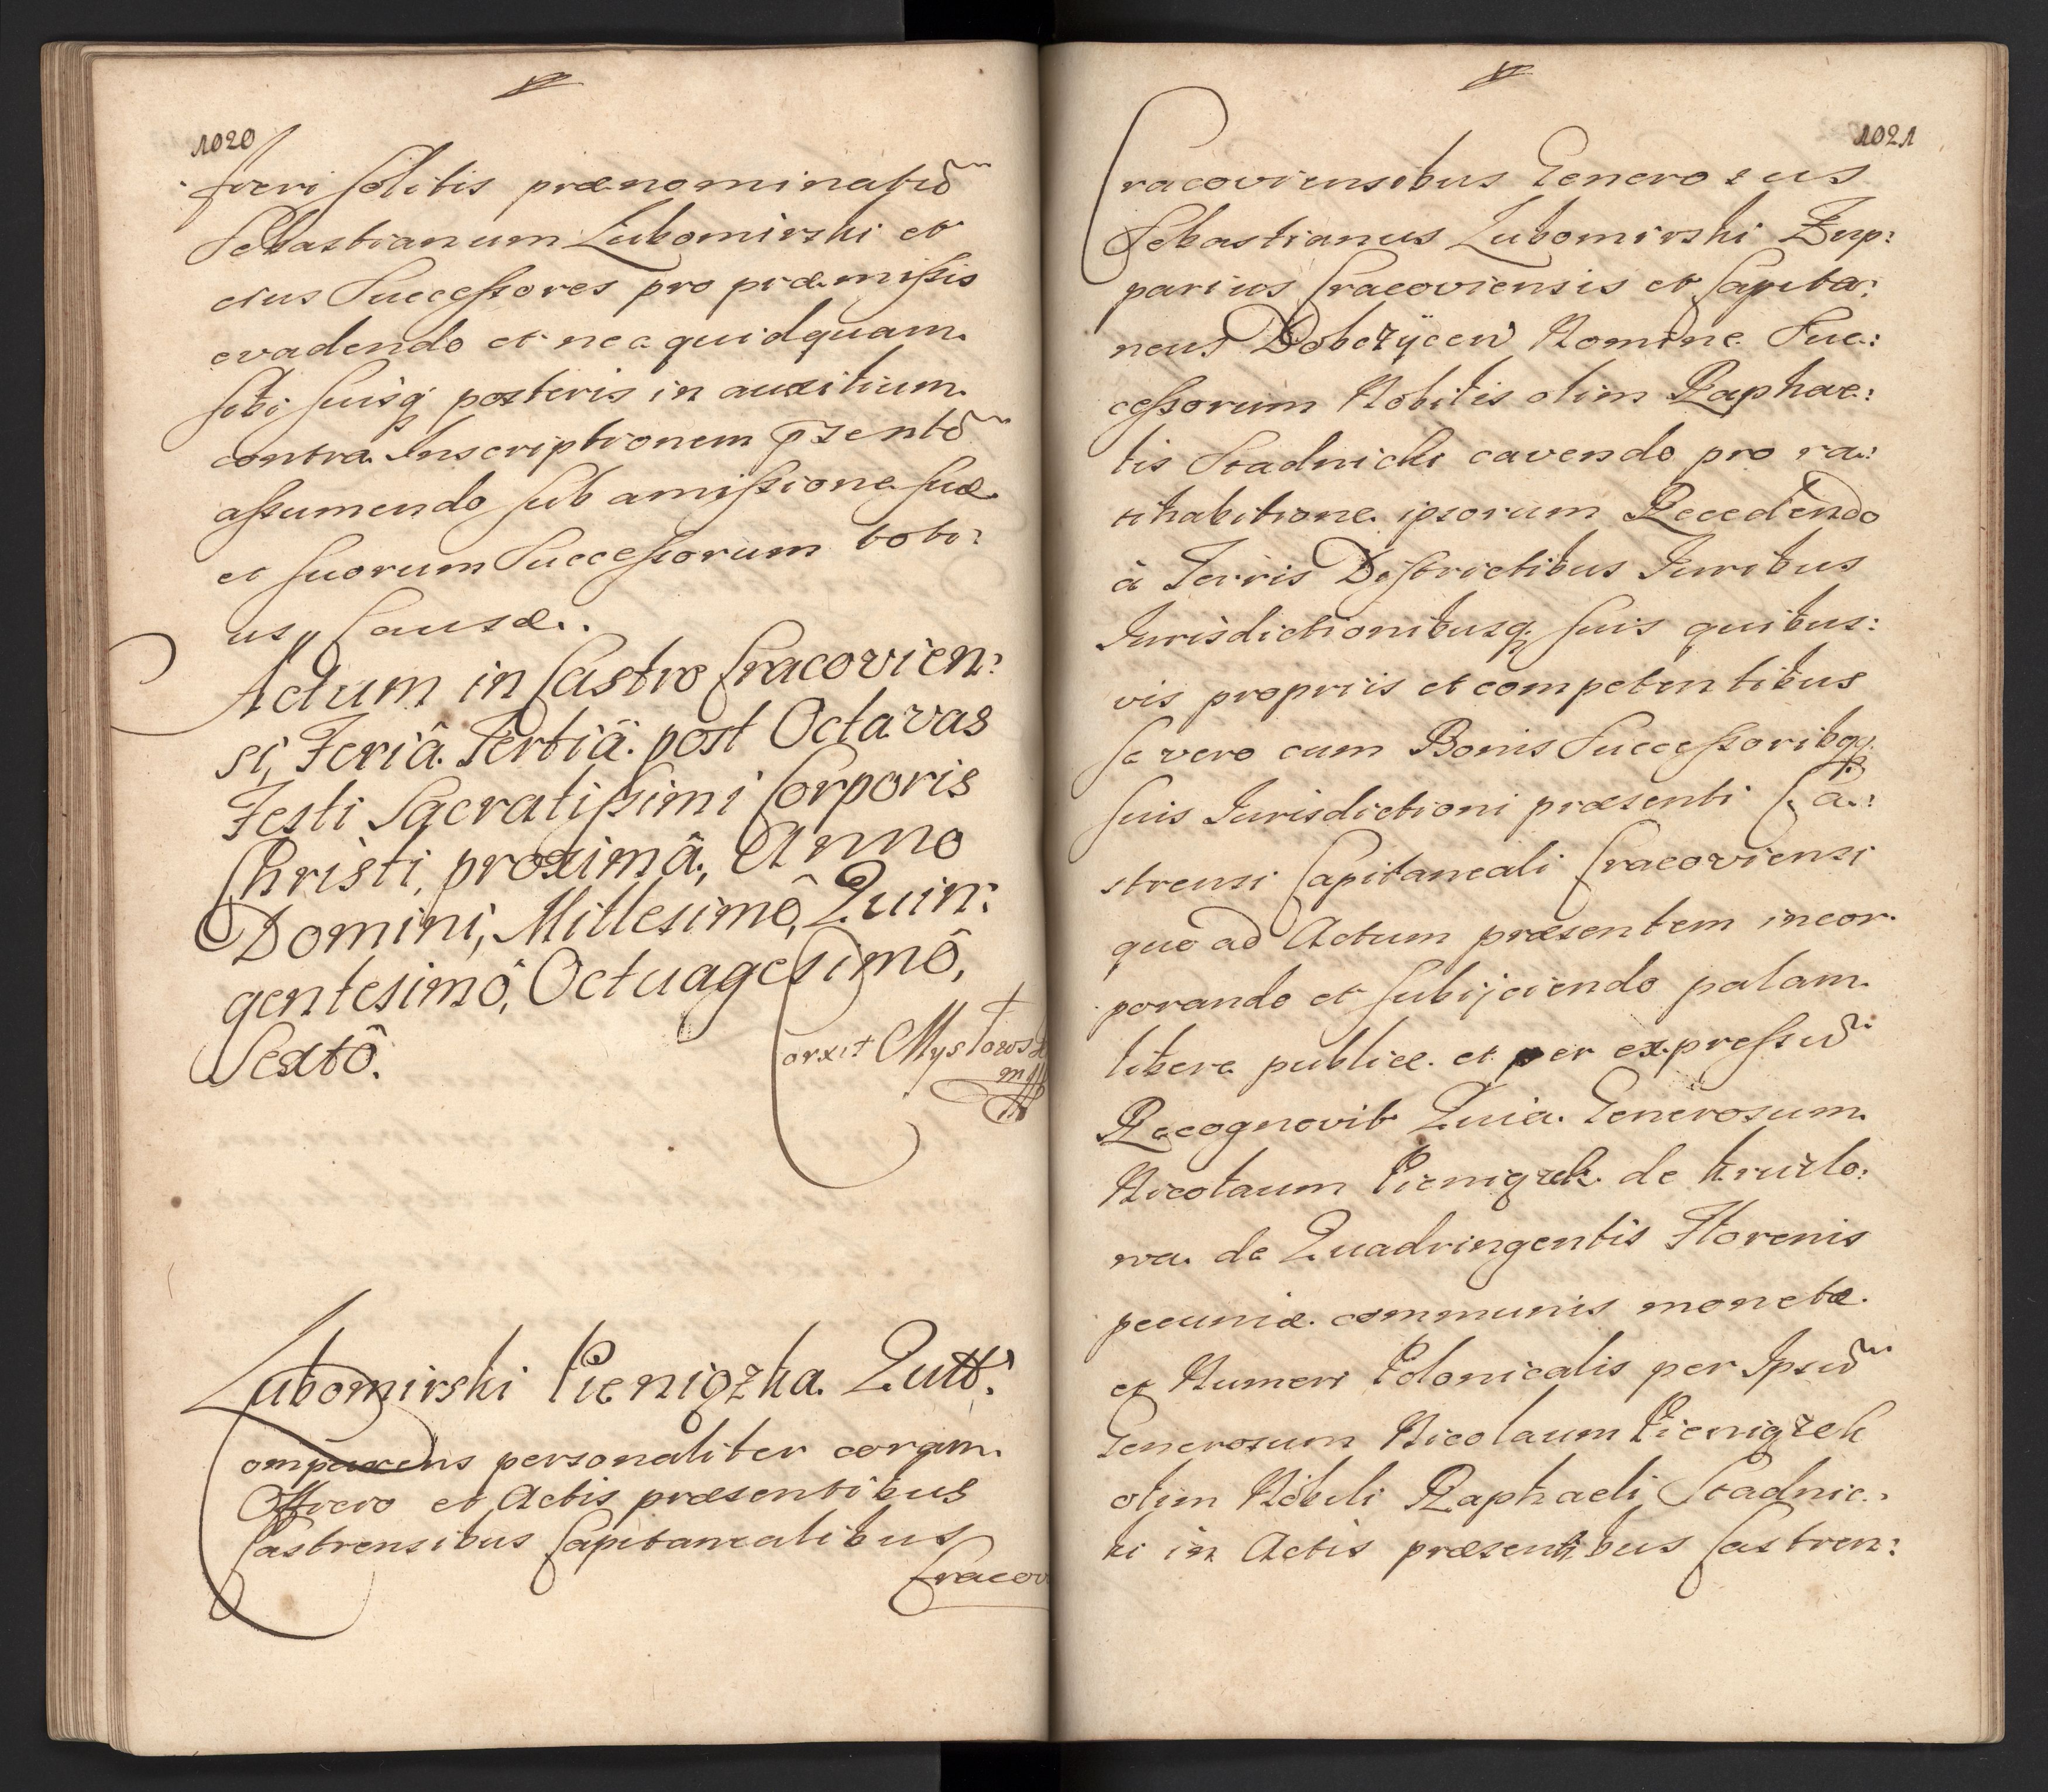 1020
fieri solitis prænominatũ
Sebastianum Lubomirski et
eius Successores pro præmissis
evadendo et nec quidquam
sibi suisq posteris in auxilium
contra Inscriptionem p̄sentẽ
assumendo sub amissione suæ
et suorum Successorum toti:
us Causæ.
Actum in Castro Cracovien:
si, Feriâ Tertiâ post Octavas
Festi Sacratissimi Corporis
Christi, proximâ, Anno
Domini, Millesimô, Quin:
gentesimô, Octuagesimô,
Sextô.
Corxit Mysłows
mp
Lubomirski Pieniązka Qutt:
Comparens personaliter coram
Offício et Actis præsentibus
Castrensibus Capitanealibus
Cracov
1021
Cracoviensibus Generosus
Sebastianus Lubomirski Zup:
parius Cracoviensis et Capita:
neus Dobczÿcen Nomine Suc:
cessorum Nobilis olim Raphae:
lis Stadnicki cavendo pro ra:
tihabitione ipsorum Recedendo
à Terris Districtibus Juribus
Jurisdictionibusq suis quibus:
vis propriis et competentibus
se vero cum Bonis Successoribqq
suis Jurisdictioni præsenti Ca:
strensi Capitaneali Cracoviensi
quo ad Actum præsentem incor
porando et subijciendo palam
libere publice et per expressũ
Recognovit Quia Generosum
Nicolaum Pieniązek de Kruzlo:
wa de Quadringentis Florenis
pecuniæ communis monetæ
et Numeri Polonicalis per Ipsũ
Generosum Nicolaum Pieniązek
olim Nobili Raphaeli Stadnic:
ki in Actis præsentibus Castren: